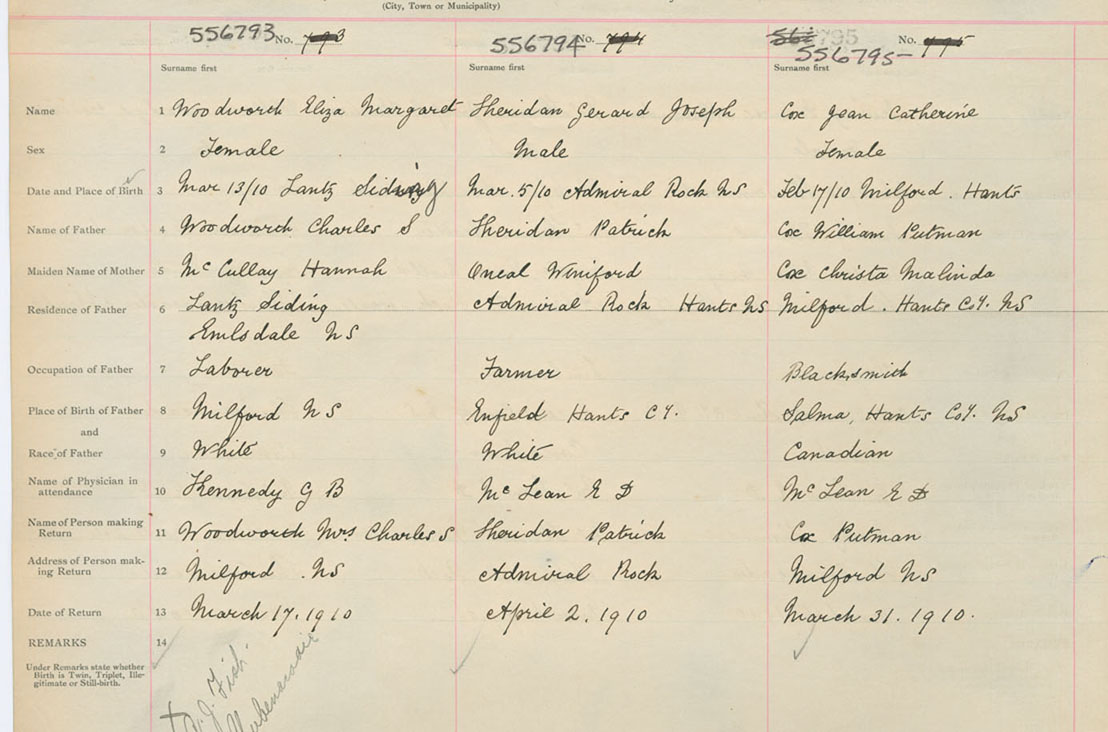 (City, Town or Municipality)
556793 No. 793 556794 No. 794 795 No. 795
556795
Surname first Surname first Surname first
Name 1 Woodworth Eliza Margaret Sheridan Gerard Joseph Cox Jean Catherine
Sex 2 Female Male Female
Date and Place of Birth 3 Mar 13/10 Lantz Siding Mar. 5/10 Admiral Rock NS Feb 17/10 Milford. Hants
Name of Father 4 Woodworth Charles S Sheridan Patrick Cox William Putman
Maiden Name of Mother 5 McCullay Hannah Oneal Winiford Cox Christa Malinda
Residence of Father 6 Lantz Siding Admiral Rock Hants NS Milford. Hants Coy. NS
Emlsdale NS
Occupation of Father 7 Laborer Farmer Blacksmith
Place of Birth of Father 8 Milford NS Enfield Hants CY. Salma, Hants Coy. NS
and
Race of Father 9 White White Canadian
Name of Physician in
attendance 10 Kennedy G B McLean E D McLean E D
Name of Person making
Return 11 Woodworth Mrs Charles S Sheridan Patrick Cox Putman
Address of Person mak-
ing Return 12 Milford .NS Admiral Rock Milford NS
Date of Return 13 March 17. 1910 April 2. 1910 March 31. 1910.
REMARKS 14
Under Remarks state whether
Birth is Twin, Triplet, Ille-
gitimate or Still-birth.
J. Fish.